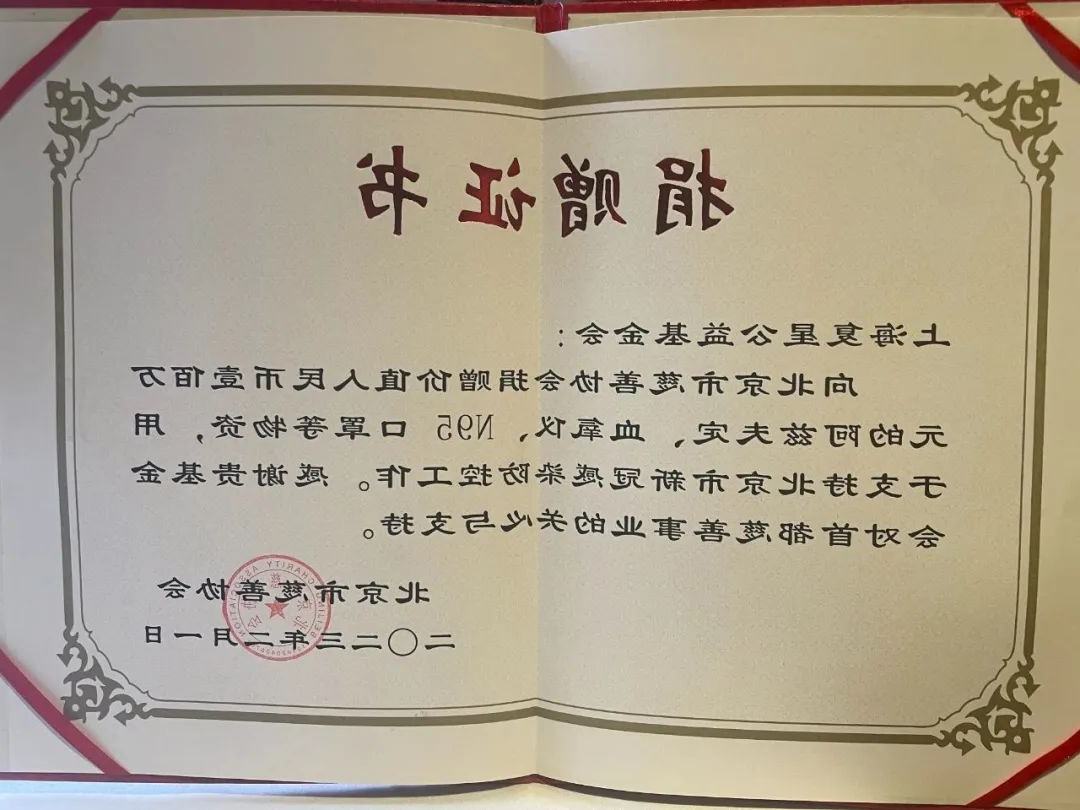 捐赠证书
上海复星公益基金会：
向北京市慈善协会捐赠价值人民币壹佰万
元的阿兹夫定、血氧仪、N95 口罩等物资，用
于支持北京市新冠感染防控工作。感谢贵基金
会对首都慈善事业的关心与支持。
北京市慈善协会
二〇二三年二月一日
BEIJING CHARITY ASSOCIATION